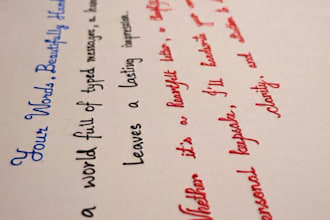 Your Words, Beautifully Hand
a world full of typed messages, a
Leaves a lasting impression.
Whether it's a heartfelt letter, a
ersonal keepsake, I'll handwrite your
clarity, and